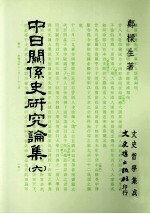 鄭樑生著
中日關係史研究論集(六)
文史哲學集成
文史哲出版社印行